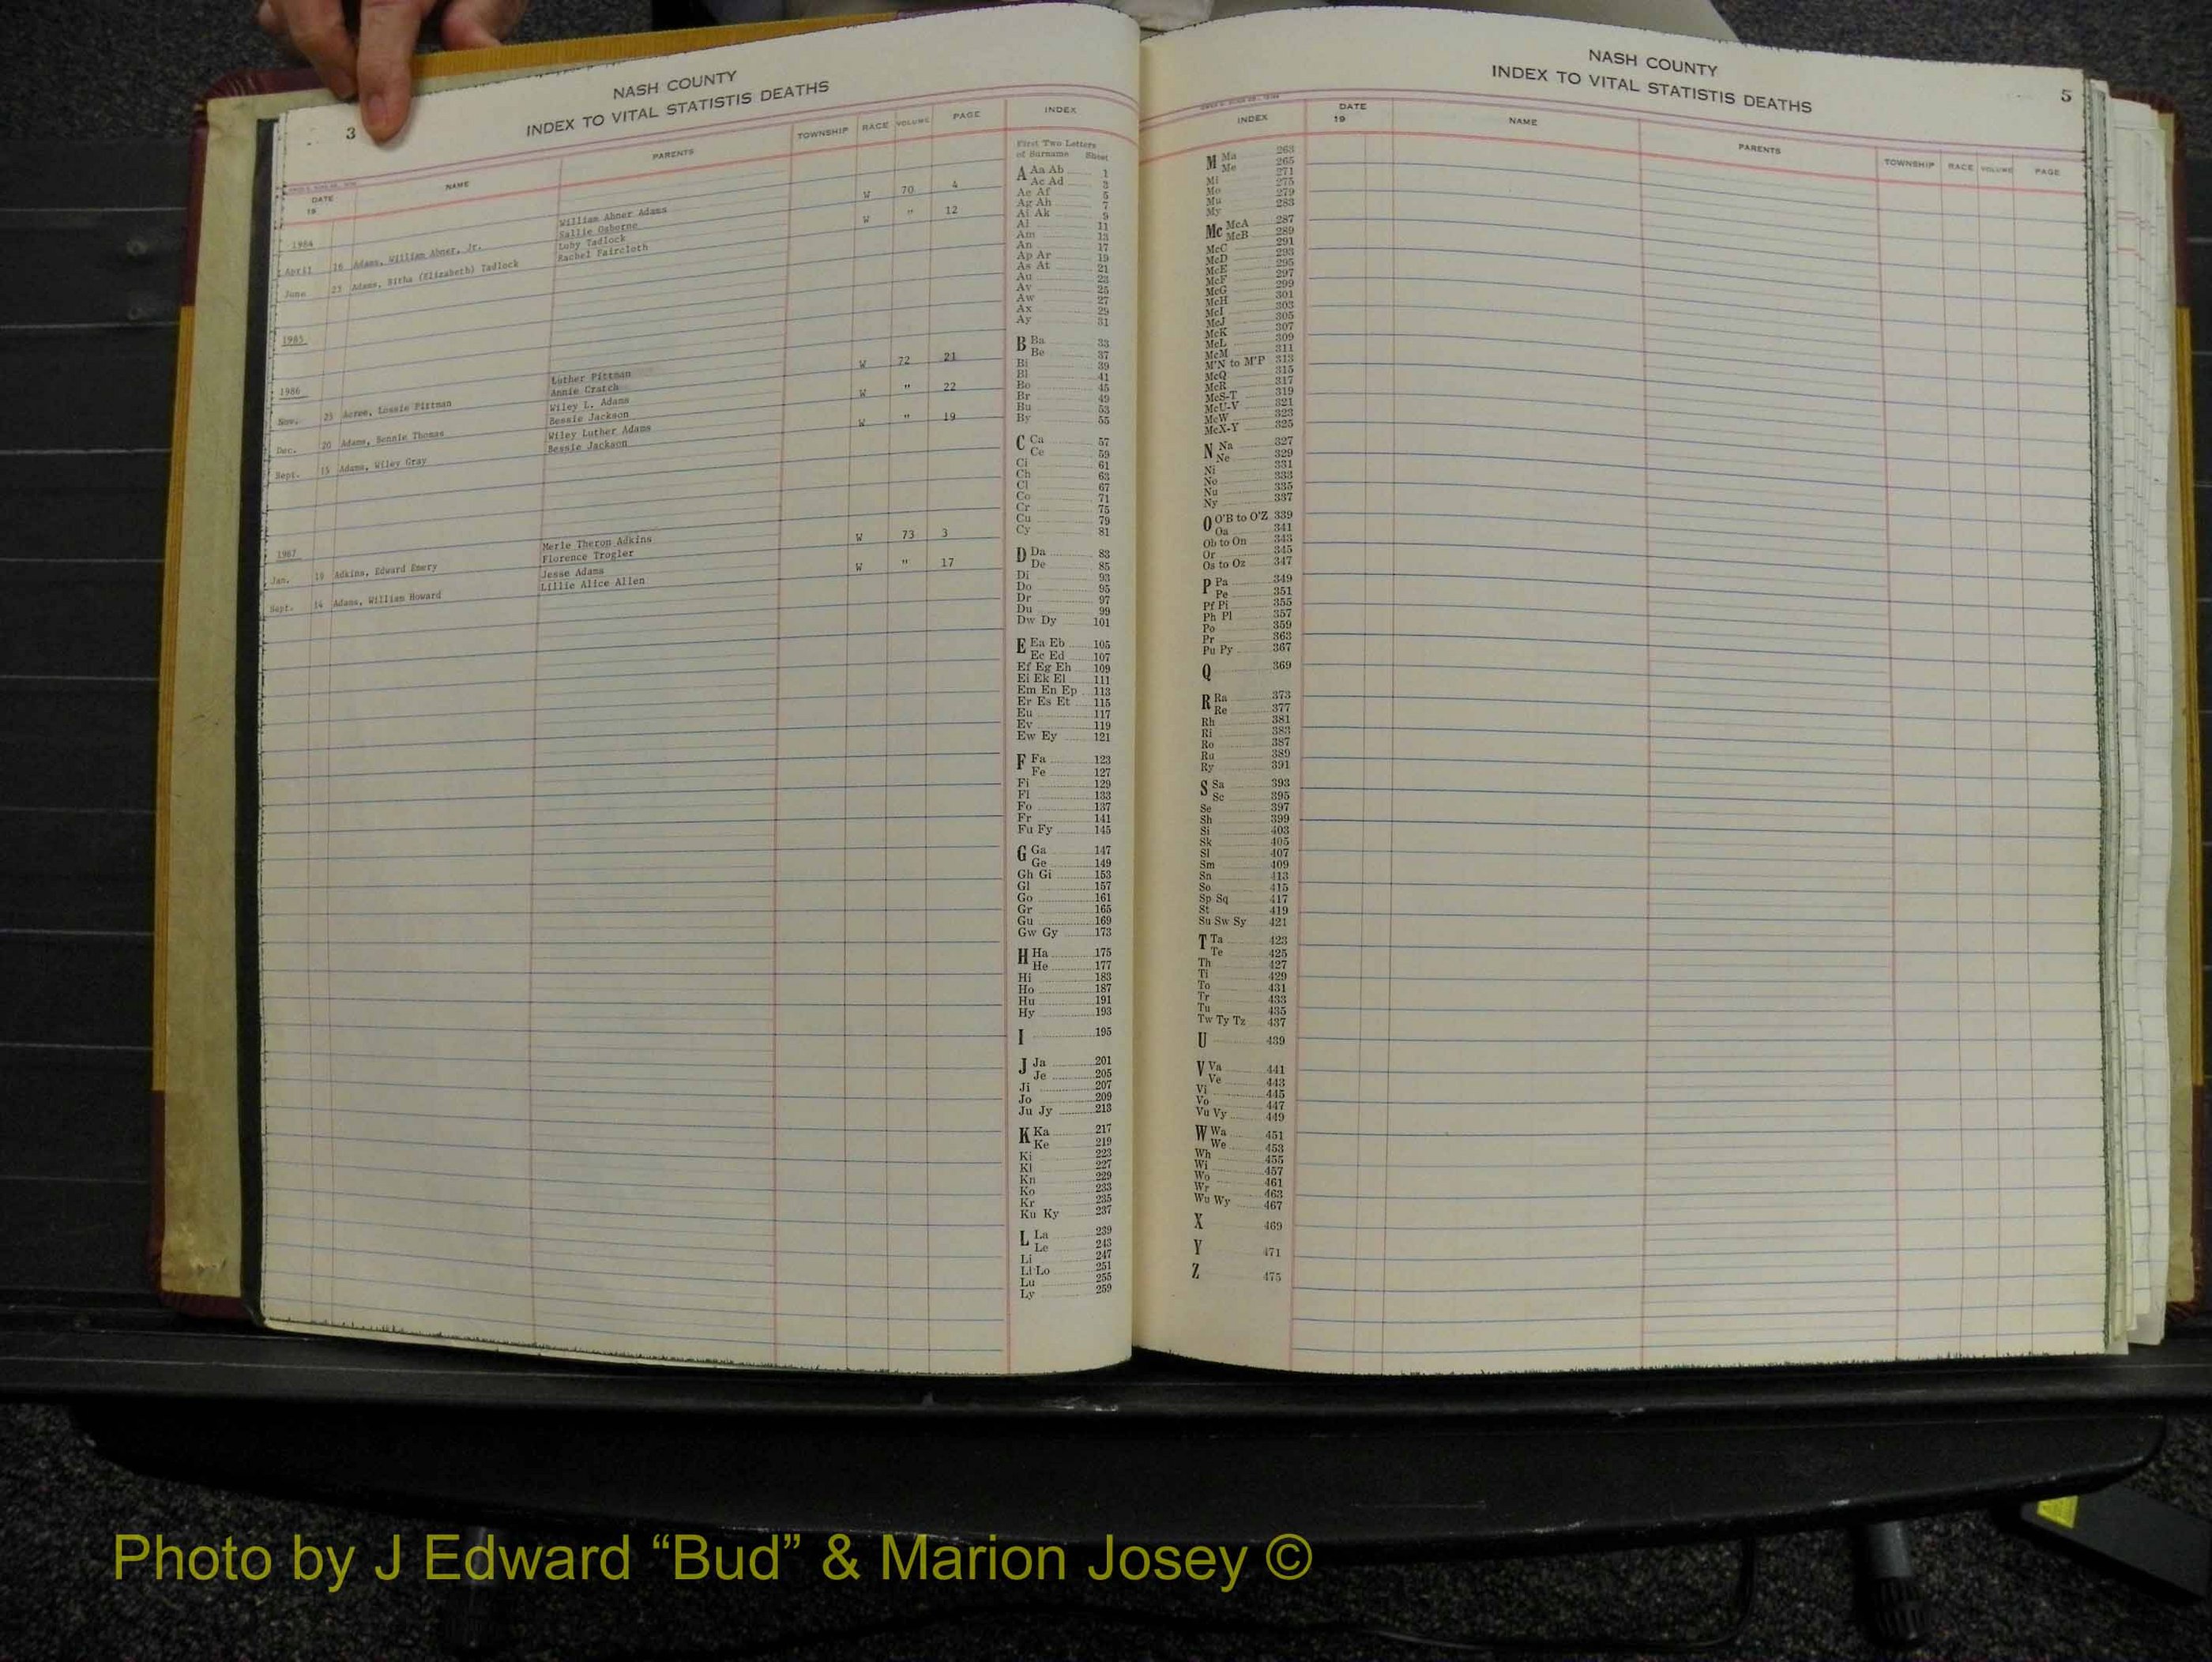 NASH COUNTY
INDEX TO VITAL STATISTIS DEATHS
3
DATE 19 NAME PARENTS TOWNSHIP RACE VOLUME PAGE
1984
William Abner Adams W 70 4
April 16 Adams, William Abner, Jr. Sallie Osborne
Luby Tadlock W " 12
June 23 Adams, Bitha (Elizabeth) Tadlock Rachel Faircloth
1985
1986
Luther Pittman W 72 21
Nov. 25 Acree, Lossie Pittman Annie Cratch
Wiley L. Adams W " 22
Dec. 20 Adams, Bennie Thomas Bessie Jackson
Wiley Luther Adams W " 19
Sept. 15 Adams, Wiley Gray Bessie Jackson
1987
Merle Theron Adkins W 73 3
Jan. 18 Adkins, Edward Emery Florence Trogler
Jesse Adams W " 17
Sept. 14 Adams, William Howard Lillie Alice Allen
INDEX
First Two Letters
of Surname Sheet
A Aa Ab 1
Ac Ad 3
Ae Af 5
Ag Ah 7
Ai Ak 9
Al 11
Am 13
An 17
Ap Ar 19
As At 21
Au 23
Av 25
Aw 27
Ax 29
Ay 31
B Ba 33
Be 37
Bi 39
Bl 41
Bo 45
Br 49
Bu 53
By 55
C Ca 57
Ce 59
Ci 61
Ch 63
Cl 67
Co 71
Cr 75
Cu 79
Cy 81
D Da 83
De 85
Di 93
Do 95
Dr 97
Du 99
Dw Dy 101
E Ea Eb 105
Ec Ed 107
Ef Eg Eh 109
Ei Ek El 111
Em En Ep 113
Er Es Et 115
Eu 117
Ev 119
Ew Ey 121
F Fa 123
Fe 127
Fi 129
Fl 133
Fo 137
Fr 141
Fu Fy 145
G Ga 147
Ge 149
Gh Gi 153
Gl 157
Go 161
Gr 165
Gu 169
Gw Gy 173
H Ha 175
He 177
Hi 183
Ho 187
Hu 191
Hy 193
I 195
J Ja 201
Je 205
Ji 207
Jo 209
Ju Jy 213
K Ka 217
Ke 219
Ki 223
Kl 227
Kn 229
Ko 233
Kr 235
Ku Ky 237
L La 239
Le 243
Li 247
Ll Lo 251
Lu 255
Ly 259
NASH COUNTY
INDEX TO VITAL STATISTIS DEATHS
5
INDEX DATE 19 NAME PARENTS TOWNSHIP RACE VOLUME PAGE
M Ma 263
Me 265
Mi 271
Mo 275
Mu 279
My 283
Mc McA 287
McB 289
McC 291
McD 293
McE 295
McF 297
McG 299
McH 301
McI 303
McJ 305
McK 307
McL 309
McM 311
M'N to M'P 313
McQ 315
McR 317
McS-T 319
McU-V 321
McW 323
McX-Y 325
N Na 327
Ne 329
Ni 331
No 333
Nu 335
Ny 337
O O'B to O'Z 339
Oa 341
Ob to On 343
Or 345
Os to Oz 347
P Pa 349
Pe 351
Pf Pi 355
Ph Pl 357
Po 359
Pr 363
Pu Py 367
Q 369
R Ra 373
Re 377
Rh 381
Ri 383
Ro 387
Ru 389
Ry 391
S Sa 393
Sc 395
Se 397
Sh 399
Si 403
Sk 405
Sl 407
Sm 409
Sn 413
So 415
Sp Sq 417
St 419
Su Sw Sy 421
T Ta 423
Te 425
Th 427
Ti 429
To 431
Tr 433
Tu 435
Tw Ty Tz 437
U 439
V Va 441
Ve 443
Vi 445
Vo 447
Vu Vy 449
W Wa 451
We 453
Wh 455
Wi 457
Wo 461
Wr 463
Wu Wy 467
X 469
Y 471
Z 475
Photo by J Edward “Bud” & Marion Josey ©